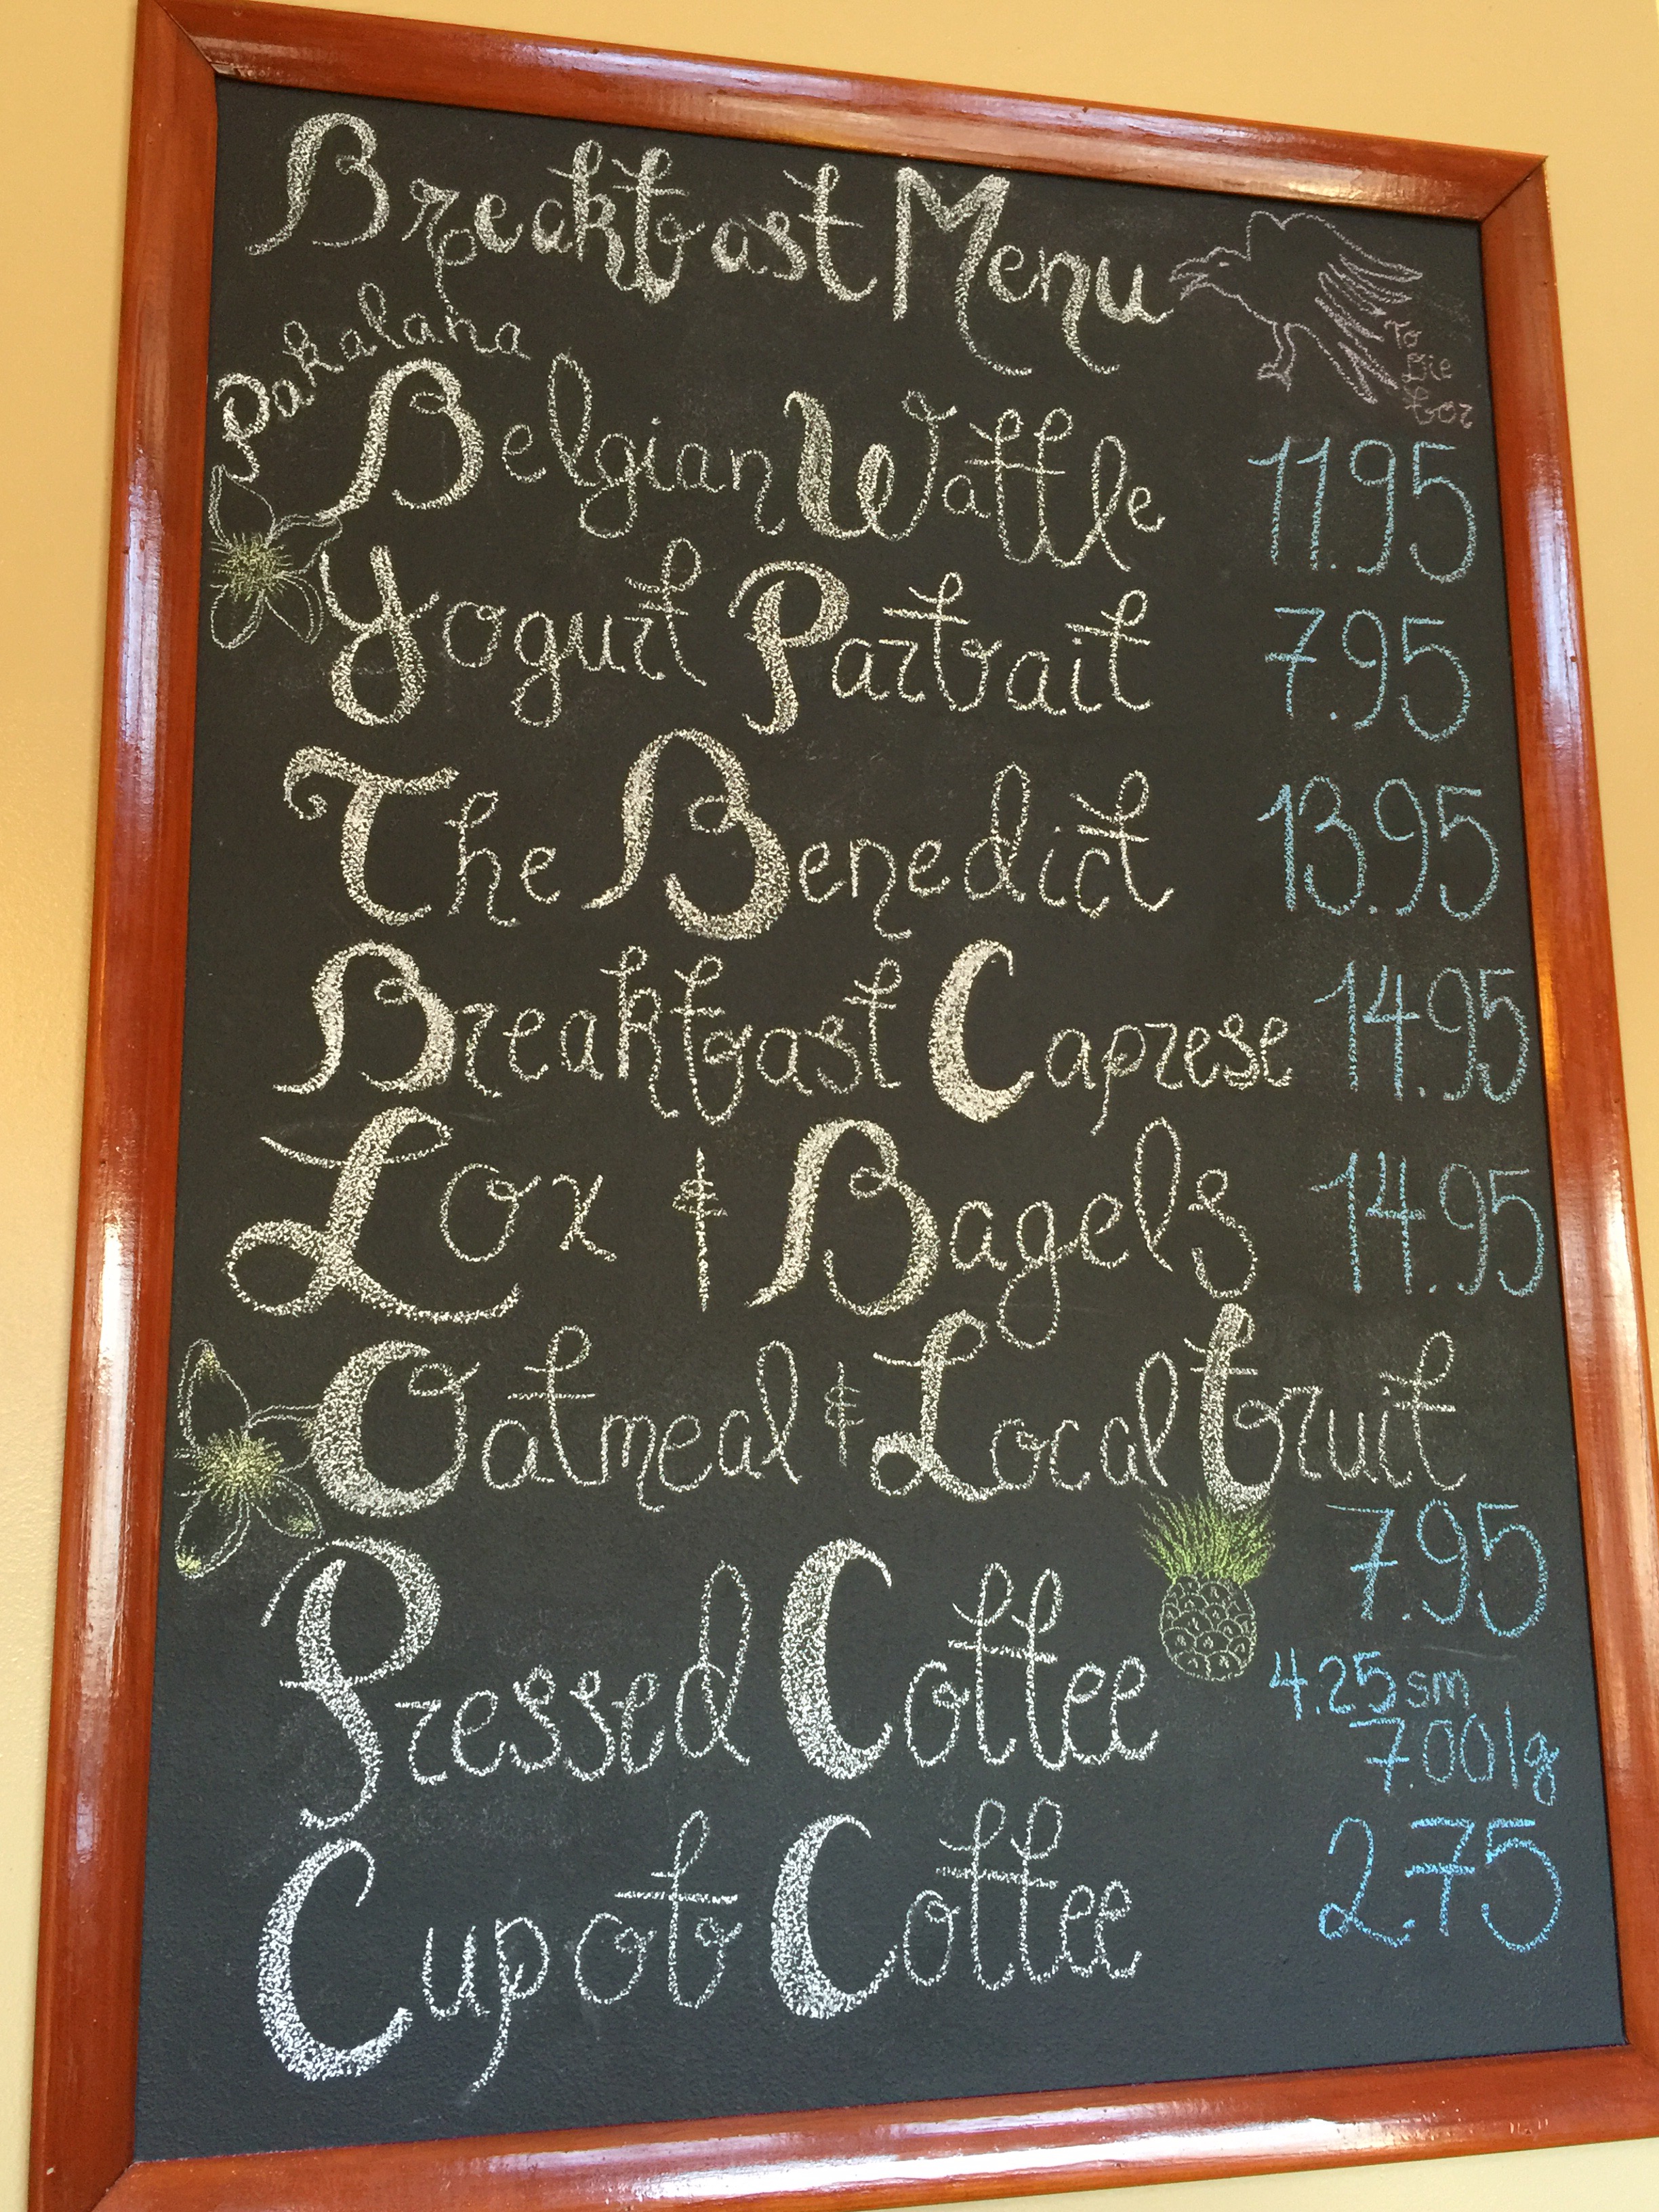 Breakfast Menu
To
Die
for
Pakalana
Belgian Waffle 11.95
Yogurt Parfait 7.95
The Benedict 13.95
Breakfast Caprese 14.95
Lox & Bagels 14.95
Oatmeal & Local fruit
7.95
Pressed Coffee 4.25 sm
7.00 lg
Cup of Coffee 2.75